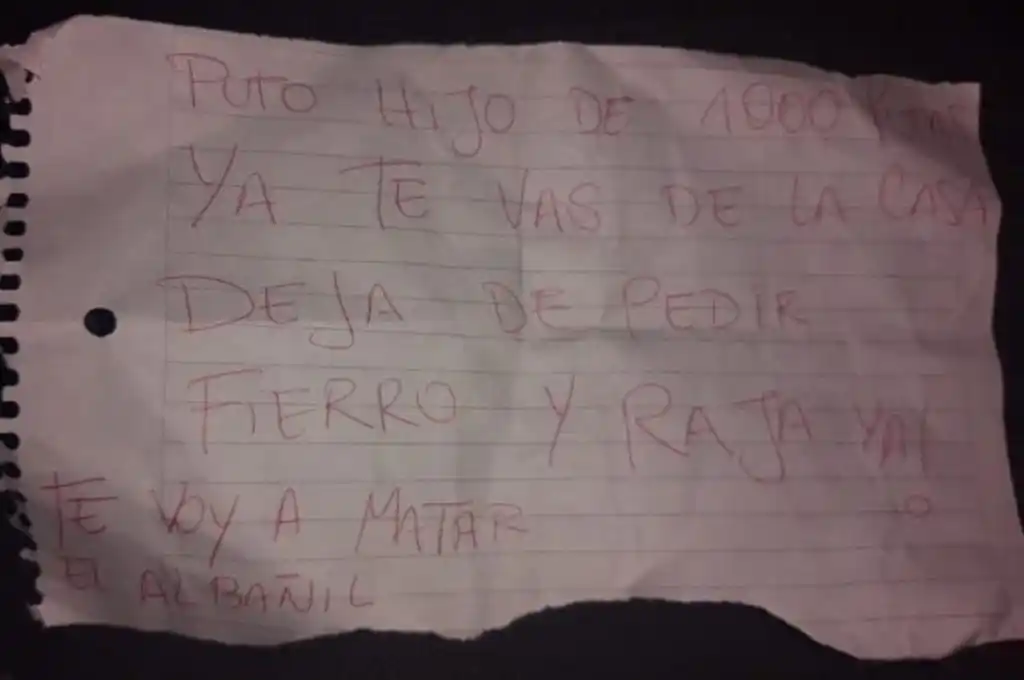 PUTO HIJO DE 1000
YA TE VAS DE LA CASA
DEJA DE PEDIR
FIERRO Y RAJA YA!
TE VOY A MATAR
EL ALBAÑIL